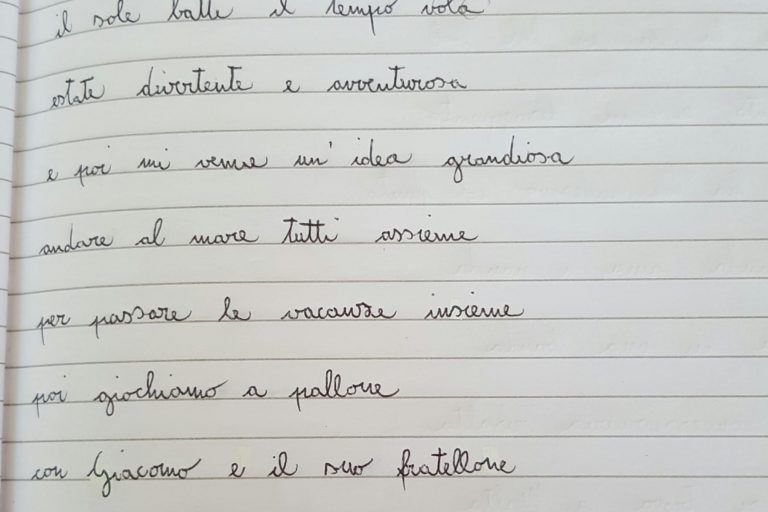 il sole batte il tempo vola
estate divertente e avventurosa
e poi mi venne un' idea grandiosa
andare al mare tutti assieme
per passare le vacanze insieme
poi giochiamo a pallone
con Giacomo e il suo fratellone